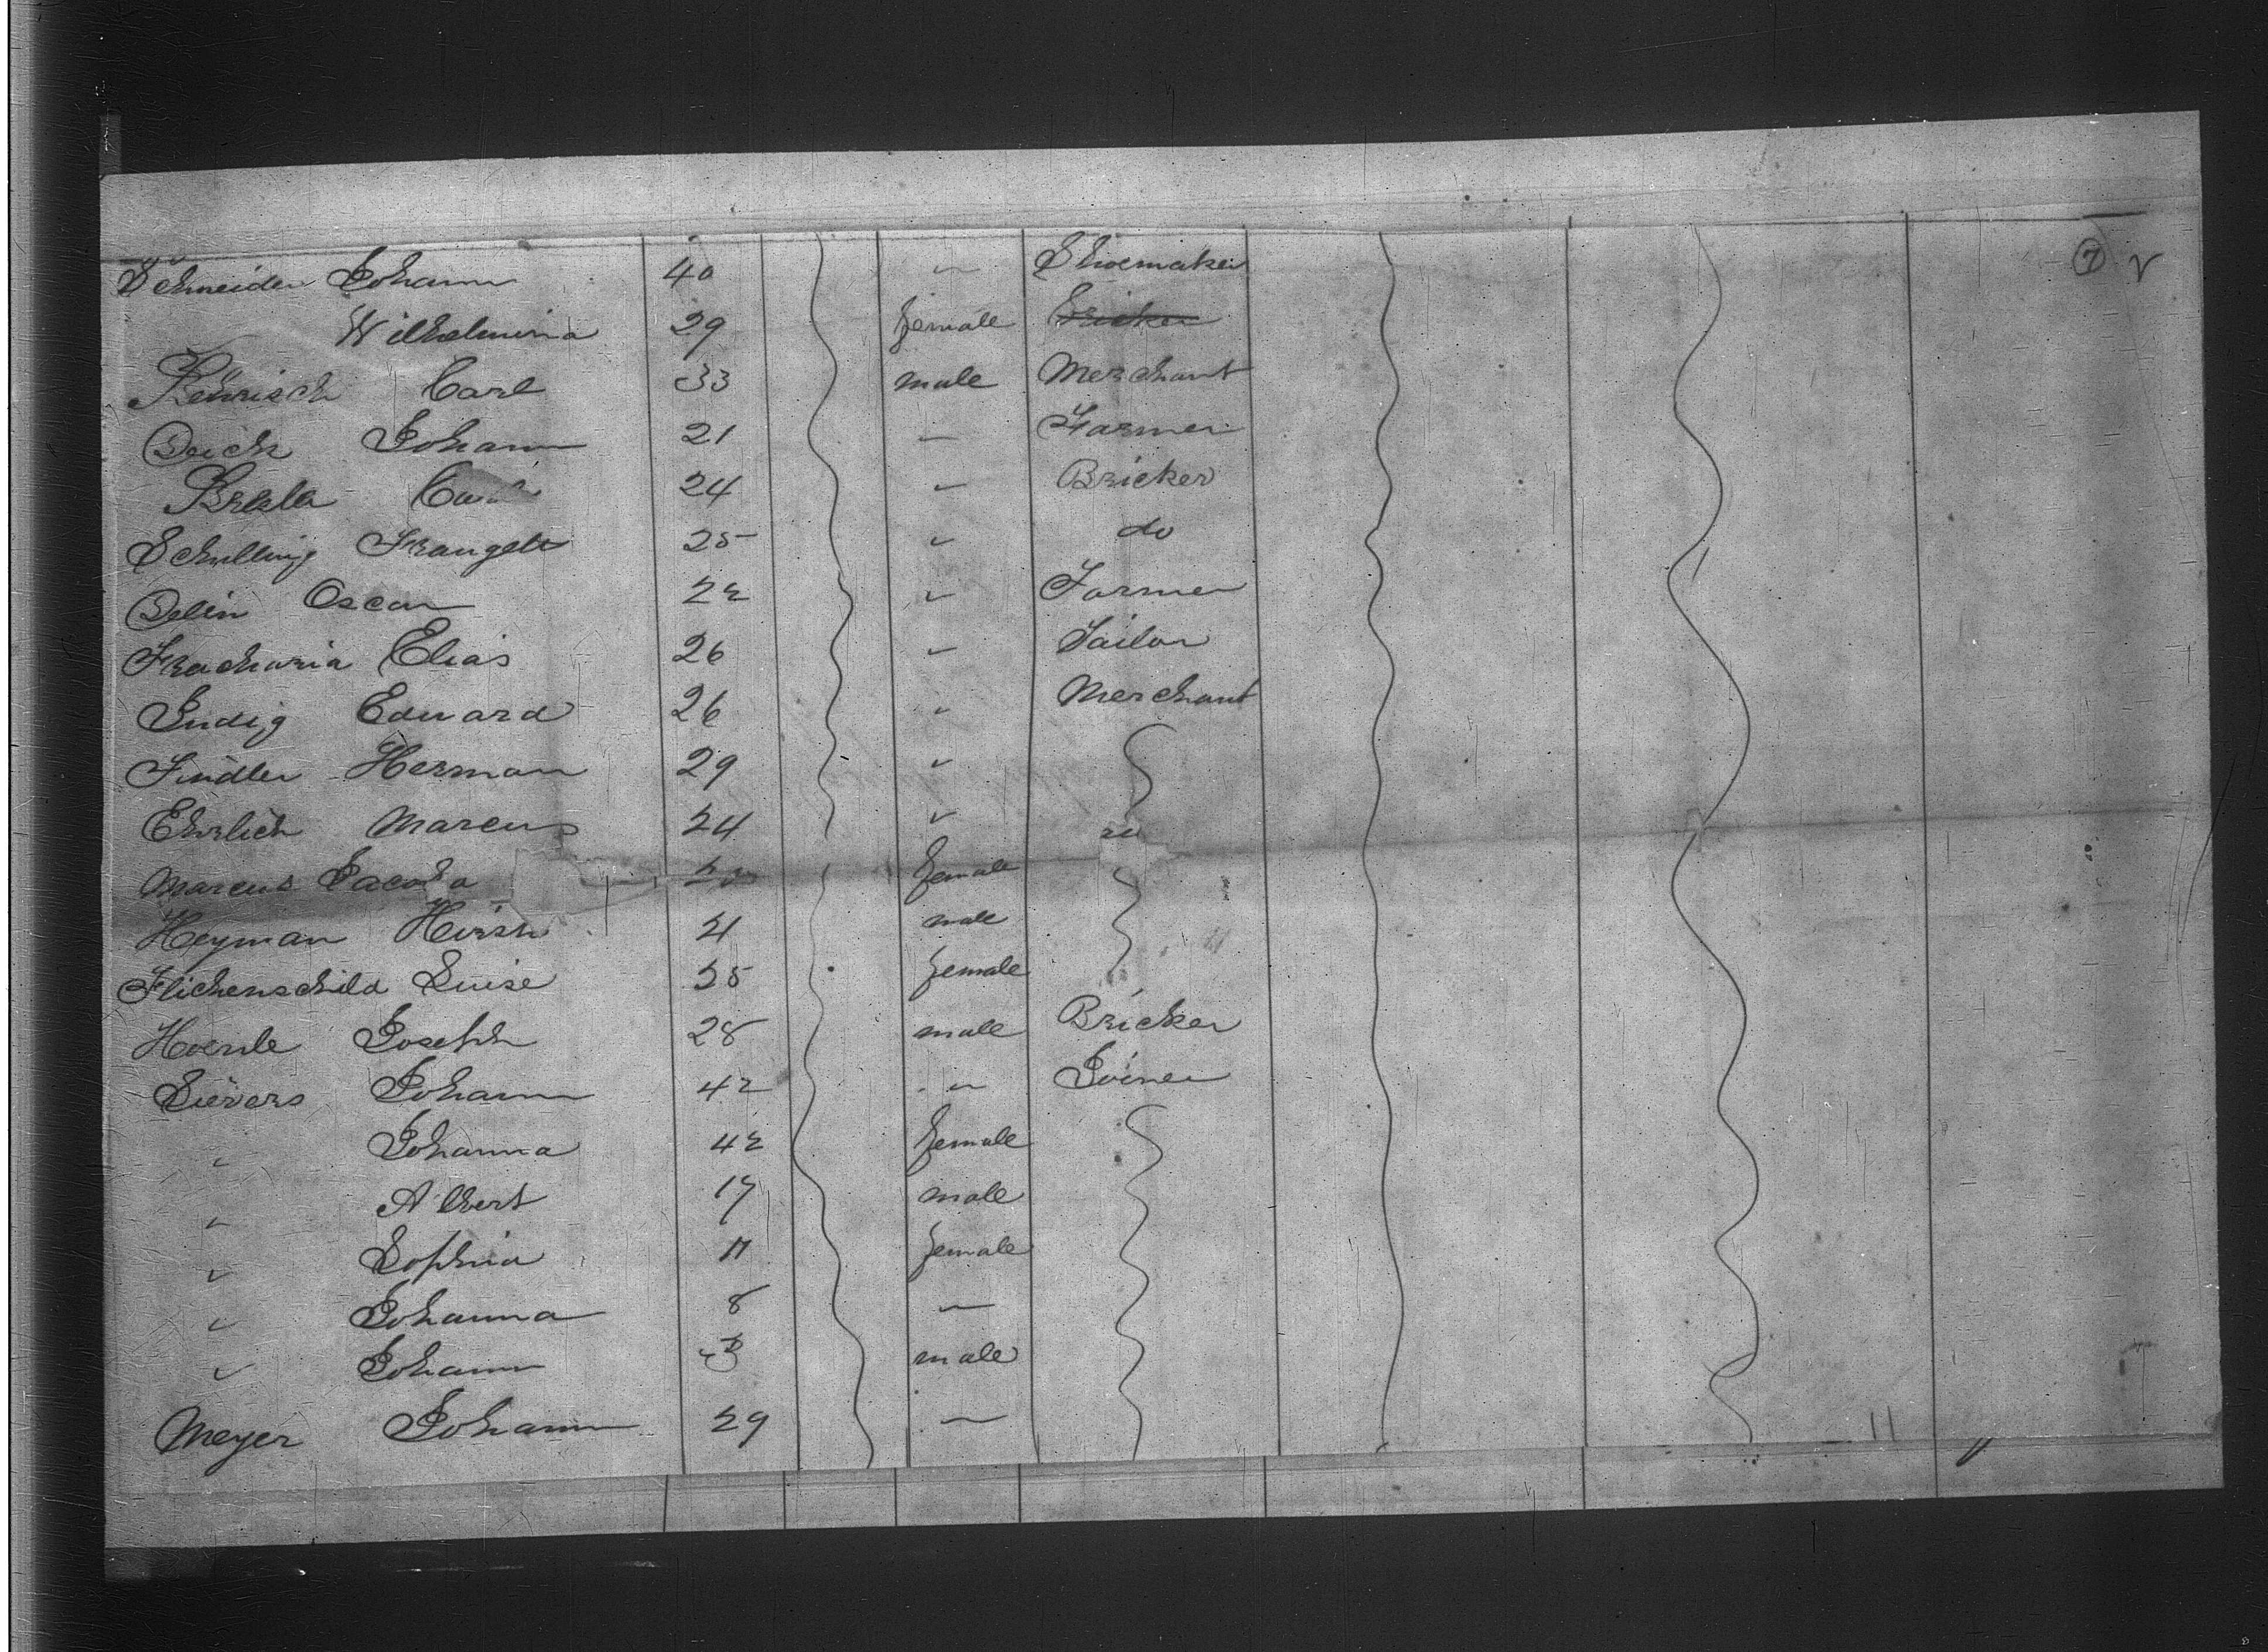 7
Schneider Johann 40 " Shoemaker
Wilhelmina 29 female Bricker
Rehrisch Carl 33 male Merchant
Deich Johann 21 " Farmer
Brella Carl 24 " Bricker
Schilling Traugott 25 " do
Delin Oscar 22 " Farmer
Fracharia Elias 26 " Tailor
Indig Eduard 26 " Merchant
Findler Herman 29 "
Ehrlich Marcus 24 "
Marcus Jacoba female
Heyman Hirsh 21 male
Flickenschild Luise 25 female
Hoenle Joseph 28 male Bricker
Sievers Johann 42 " Joiner
" Johanna 42 female
" Albert 17 male
" Sophia 11 female
" Johanna 8 "
" Johann 3 male
Meyer Johann 29 "
11